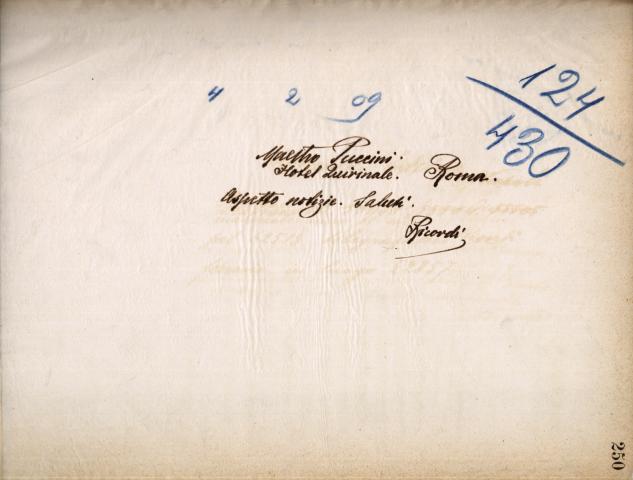 4 2 09
124
430
Maestro Puccini.
Hotel Quirinale. Roma.
Aspetto notizie. Saluti.
Ricordi
250